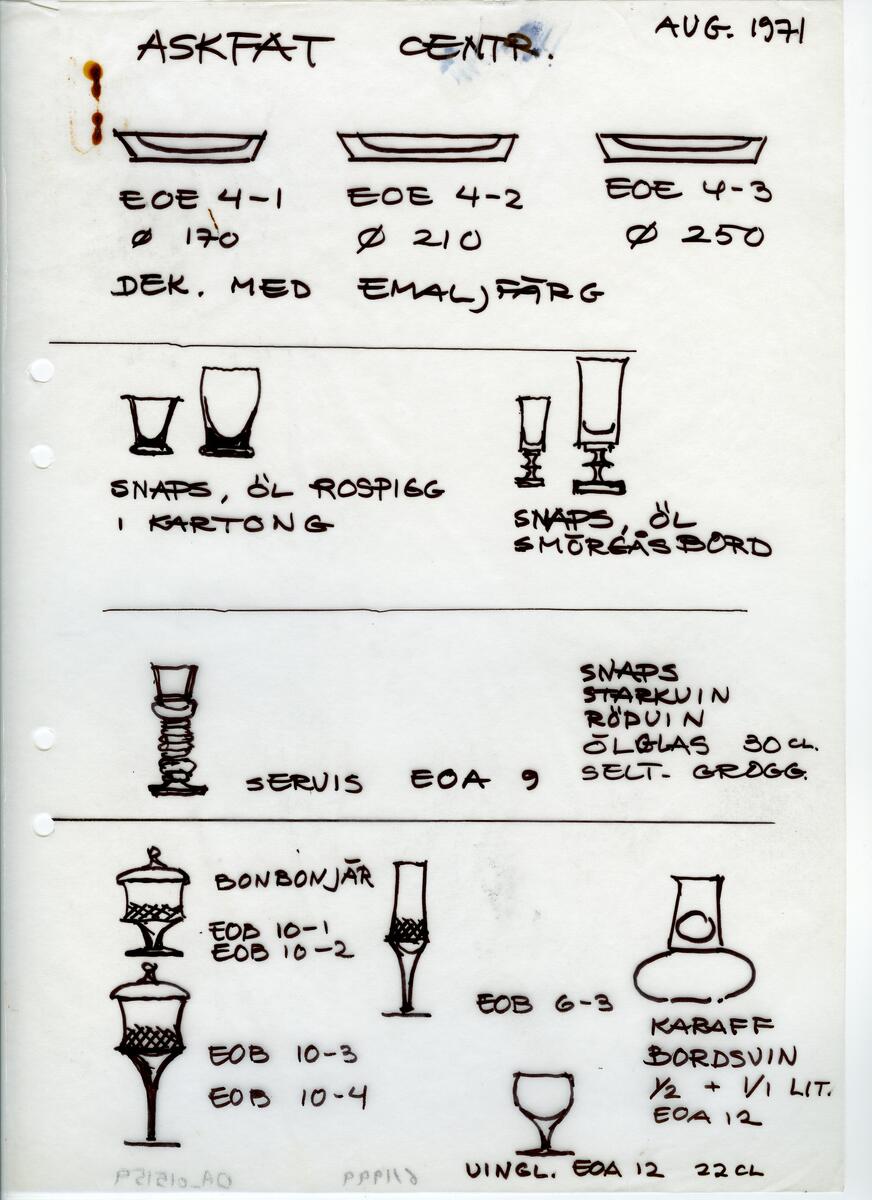 AUG. 1971
ASKFAT CENTR.
EOE 4-1
Ø 170
EOE 4-2
Ø 210
EOE 4-3
Ø 250
DEK. MED EMALJFÄRG
SNAPS, ÖL ROSPIGG
I KARTONG
SNAPS, ÖL
SMÖRGÅSBORD
SERVIS EOA 9
SNAPS
STARKVIN
RÖDVIN
ÖLGLAS 30 CL.
SELT- GROGG.
BONBONJÄR
EOB 10-1
EOB 10-2
EOB 10-3
EOB 10-4
EOB 6-3
KARAFF
BORDSVIN
1/2 + 1/1 LIT.
EOA 12
VINGL. EOA 12 22 CL